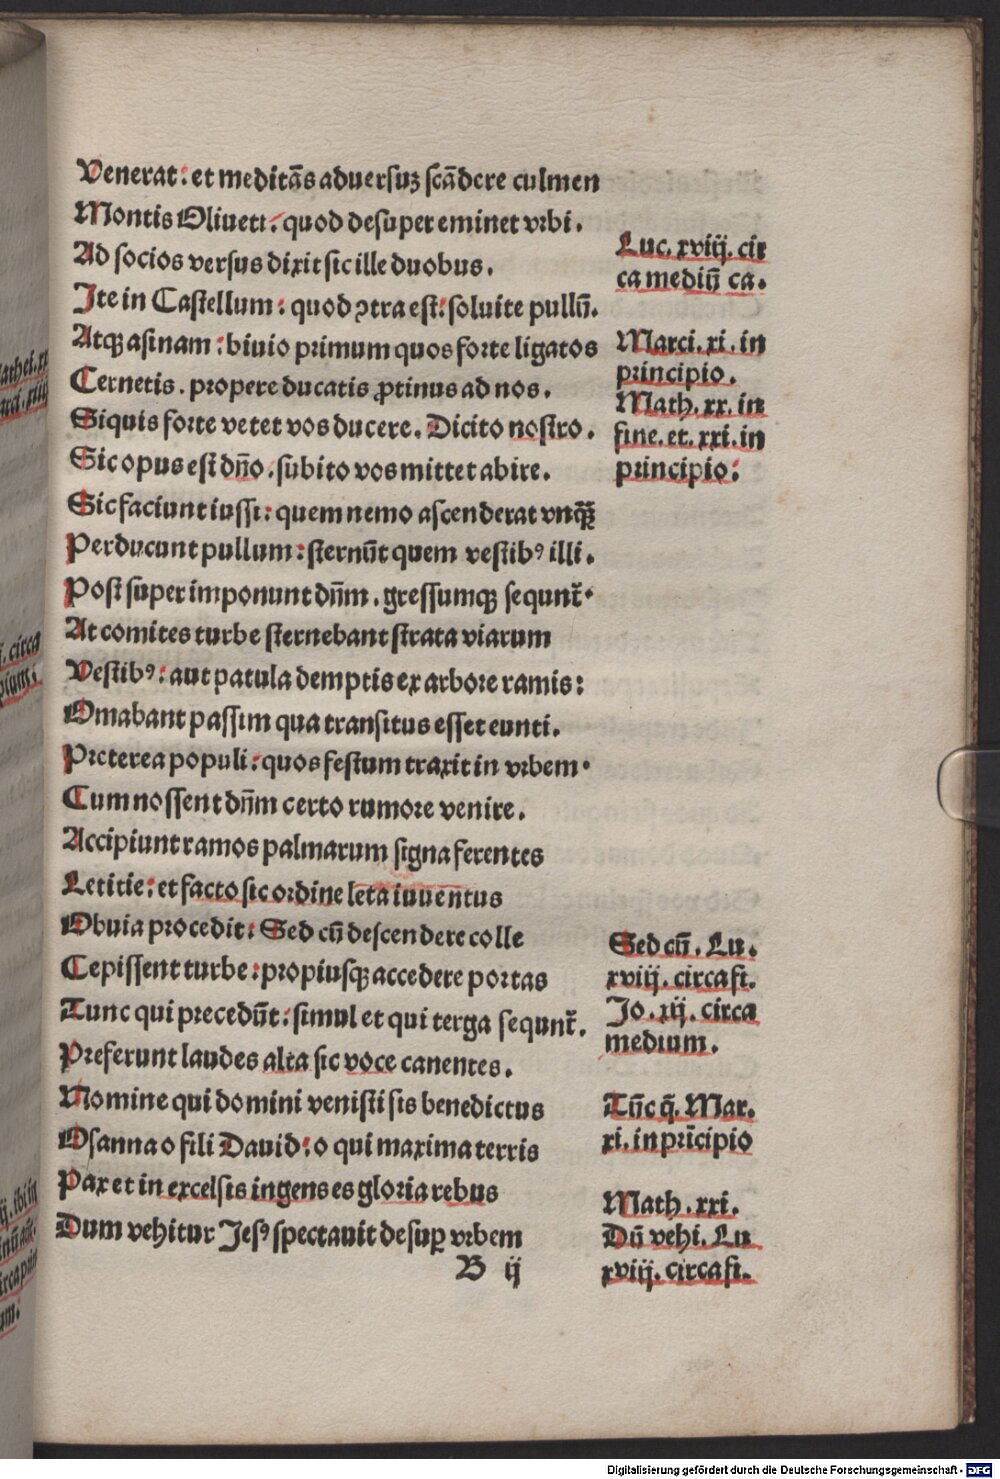 Venerat: et meditãs aduersuʒ scãdere culmen
Montis Oliueti: quod desuper eminet vrbi.
Ad socios versus dixit sic ille duobus.
Ite in Castellum: quod ↄtra est: soluite pullũ.
Atqꝫ asinam: biuio primum quos forte ligatos
Cernetis. propere ducatis ꝓtinus ad nos.
Siquis forte vetet vos ducere. Dicito nostro.
Sic opus est dño. subito vos mittet abire.
Sic faciunt iussi: quem nemo ascenderat vnqꝫ̃
Perducunt pullum: sternũt quem vestibꝰ illi.
Post super imponunt dñm. gressumqꝫ sequnt̃.
At comites turbe sternebant strata viarum
Vestibꝰ: aut patula demptis ex arbore ramis:
Ornabant passim qua transitus esset eunti.
Preterea populi: quos festum traxit in vrbem.
Cum nossent dñm certo rumore venire.
Accipiunt ramos palmarum signa ferentes
Letitie: et facto sic ordine leta iuuentus
Obuia procedit: Sed cũ descendere colle
Cepissent turbe: propiusqꝫ accedere portas
Tunc qui precedũt: simul et qui terga sequnt̃.
Preferunt laudes alta sic voce canentes.
Nomine qui domini venisti sis benedictus
Osanna o fili Dauid: o qui maxima terris
Pax et in excelsis ingens es gloria rebus
Dum vehitur Jesꝰ spectauit desuꝑ vrbem
B ij
Luc. xviij. cir
ca mediũ ca.
Marci. xi. in
principio.
Math. xx. in
fine. et. xxi. in
principio:
Sed cũ. Lu.
xviij. circa fi.
Jo. xij. circa
medium.
Tũc q̃. Mar.
xi. in prĩcipio
Math. xxi.
Dũ vehi. Lu
xviij. circa fi.
Digitalisierung gefördert durch die Deutsche Forschungsgemeinschaft - DFG